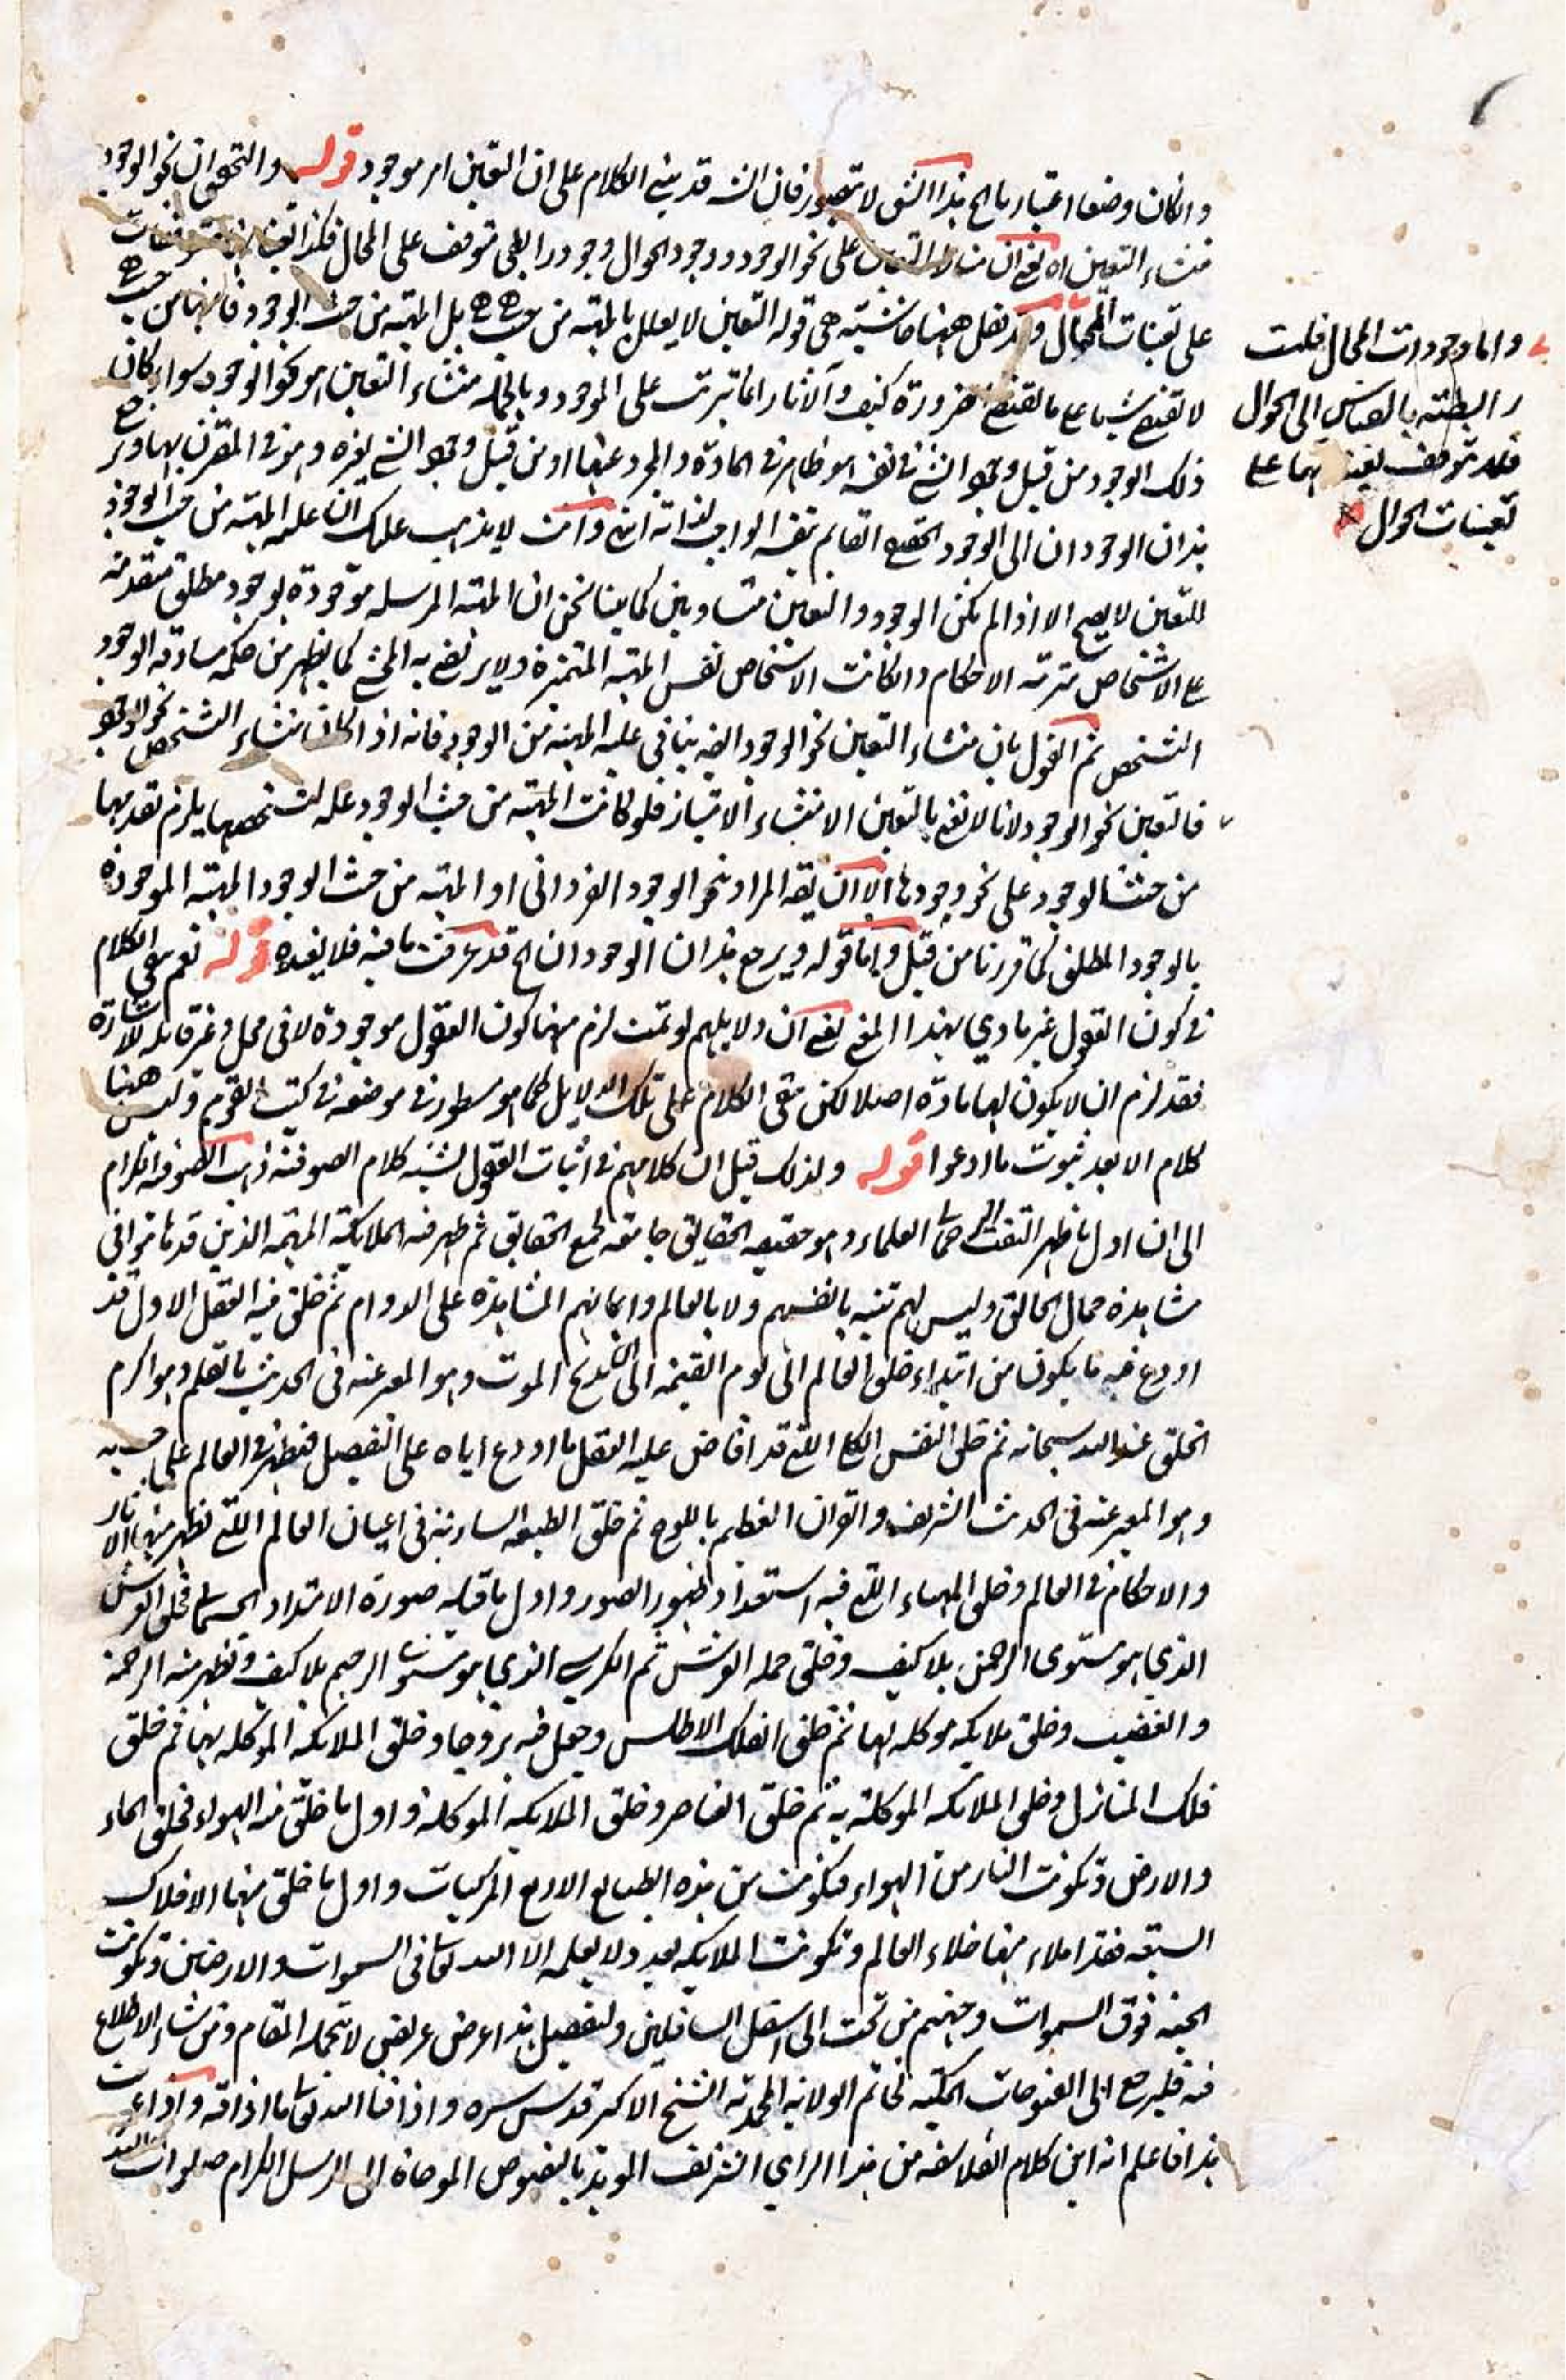 وان كان وصفا اعتباريا الخ هذا الشق لا يتصور فان الش قد بنى الكلام على ان التعين امر موجود قوله والتحقيق ان نحو الوجود
منشاء التعين اه يعنى ان على نحو الوجود ووجود الحوال وجود رابطى متوقف على المحال فكذا تعيناتها متوقفات
على تعينات المحال وقد نقل ههنا حاشيته هى قوله التعين لا يعلل بالمهية من حيث هى هى بل المهية من حيث الوجود فانها من حيث هى
لا تقتضى شيئا ما لم ضرورة كيف والآثار انما تترتب على الموجود وبالجملة منشاء التعين هو نحو الوجود سواء كان
ذلك الوجود من قبيل وجود الشئ فى نفسه هو ظاهر فى المادة والمجرد عنها او من قبيل وجود الشئ لغيره وهو فى المقترن بها ومرجع
هذان الوجودان الى الوجود الحقيقى القايم بنفسه الواجب لذاته انتهى وانت لا يذهب عليك ان علية المهية من حيث الوجود
للتعين لا يصح الا اذا لم يكن الوجود والتعين متساويين كما بينا نحن ان المهية المرسلة موجودة بوجود مطلق متقدمة
على الاشخاص مترتبة الاحكام وان كانت الاشخاص نفس المهية المتميزة ولا يرتضى به المحشى كما يظهر من حكمه مساوقة الوجود
التشخص ثم القول بان منشاء التعين نحو الوجود ايضه ينافى علية المهية من الوجود فانه اذا كان منشاء التشخص نحو الوجود
فالتعين نحو الوجود لانا لا نعنى بالتعين الا منشاء الامتياز فلو كانت المهية من حيث الوجود علة لتشخصها يلزم تقدمها
من حيث الوجود على نحو وجودها الا ان يقه المراد بنحو الوجود الفردانى او المهية من حيث الوجود المهية الموجودة
بالوجود المطلق كما قررنا من قبل واما قوله ويرجع هذان الوجودان الخ قد عرفت ما فيه فلا يفيده قوله نعم بقى الكلام
فى كون العقول غير مادي بهذا المعنى يعنى ان دلايلهم لو تمت لزم منها كون العقول موجودة لا فى محل وغير قابلة للاشارة
فقد لزم ان لا يكون لها مادة اصلا لكن بقى الكلام على تلك الدلايل كما هو مسطور فى موضعه فى كتب القوم وليس ههنا
كلام الا بعد ثبوت ما ادعوا قوله ولذلك قيل ان كلامهم فى اثبات العقول يشبه كلام الصوفية ذهب الصوفية الكرام
الى ان اول ما ظهر العماء وهو حقيقة الحقايق جامعة لجميع الحقايق ثم ظهر فيه الملايكة المهيمة الذين قد هاموا فى
مشاهدة جمال الخالق وليس لهم تنبه بانفسهم ولا بالعالم وايمانهم المشاهدة على الدوام ثم خلق فيه العقل الاول قد
اودع فيه ما يكون من ابتداء خلق العالم الى يوم القيمة الى ان يذبح الموت وهو المعبر عنه فى الحديث بالقلم وهو اكرم
الخلق عند الله سبحانه ثم خلق النفس الكلى التى قد افاض عليه العقل ما اودع اياه على التفصيل فيظهر فى العالم على حسبه
وهو المعبر عنه فى الحديث الشريف والقران العظيم باللوح ثم خلق الطبيعة السارية فى اعيان العالم التى تظهر منها الاثار
والاحكام فى العالم وخلق الهباء التى فيه استعداد ظهور الصور واول ما قبله صورة الامتداد الجسمانى فخلق العرش
الذي هو مستوى الرحمن بلا كيف وخلق حملة العرش ثم الكرسي الذي هو مستوى الرحيم بلا كيف وتظهر منه الرحمة
والغضب وخلق ملايكه موكله لها ثم خلق الفلك الاطلس وجعل فيه بروجا وخلق الملائكة الموكلة بها ثم خلق
فلك المنازل وخلق الملائكة الموكلة به ثم خلق العناصر وخلق الملايكه الموكلة واول ما خلق منه الهواء فخلق الماء
والارض وتكونت النار من الهواء فتكونت من هذه الطبايع الاربع المركبات واول ما خلق منها الافلاك
السبعة فقد املاء بها خلاء العالم وتكونت الملايكه بعد ولا يعلمه الا الله تعالى فى السموات والارضين وتكونت
الجنة فوق السموات وجهنم من تحت الى اسفل السافلين ولتفصيل هذا عرض عريض لا يتحمله المقام ومن شاء الاطلاع
فيه فليرجع الى الفتوحات المكية لخاتم الولاية المحمدية الشيخ الاكبر قدس سره واذاقنا الله تعالى ما اذاقه واذا عرفت
هذا فاعلم انه اين كلام الفلاسفة من هذا الراي الشريف المويد بالنصوص الموحاة الى الرسل الكرام صلوات الله
واما وجودات المحال فليست
رابطية بالقياس الى الحوال
فلا يتوقف تعيناتها على
تعينات الحوال